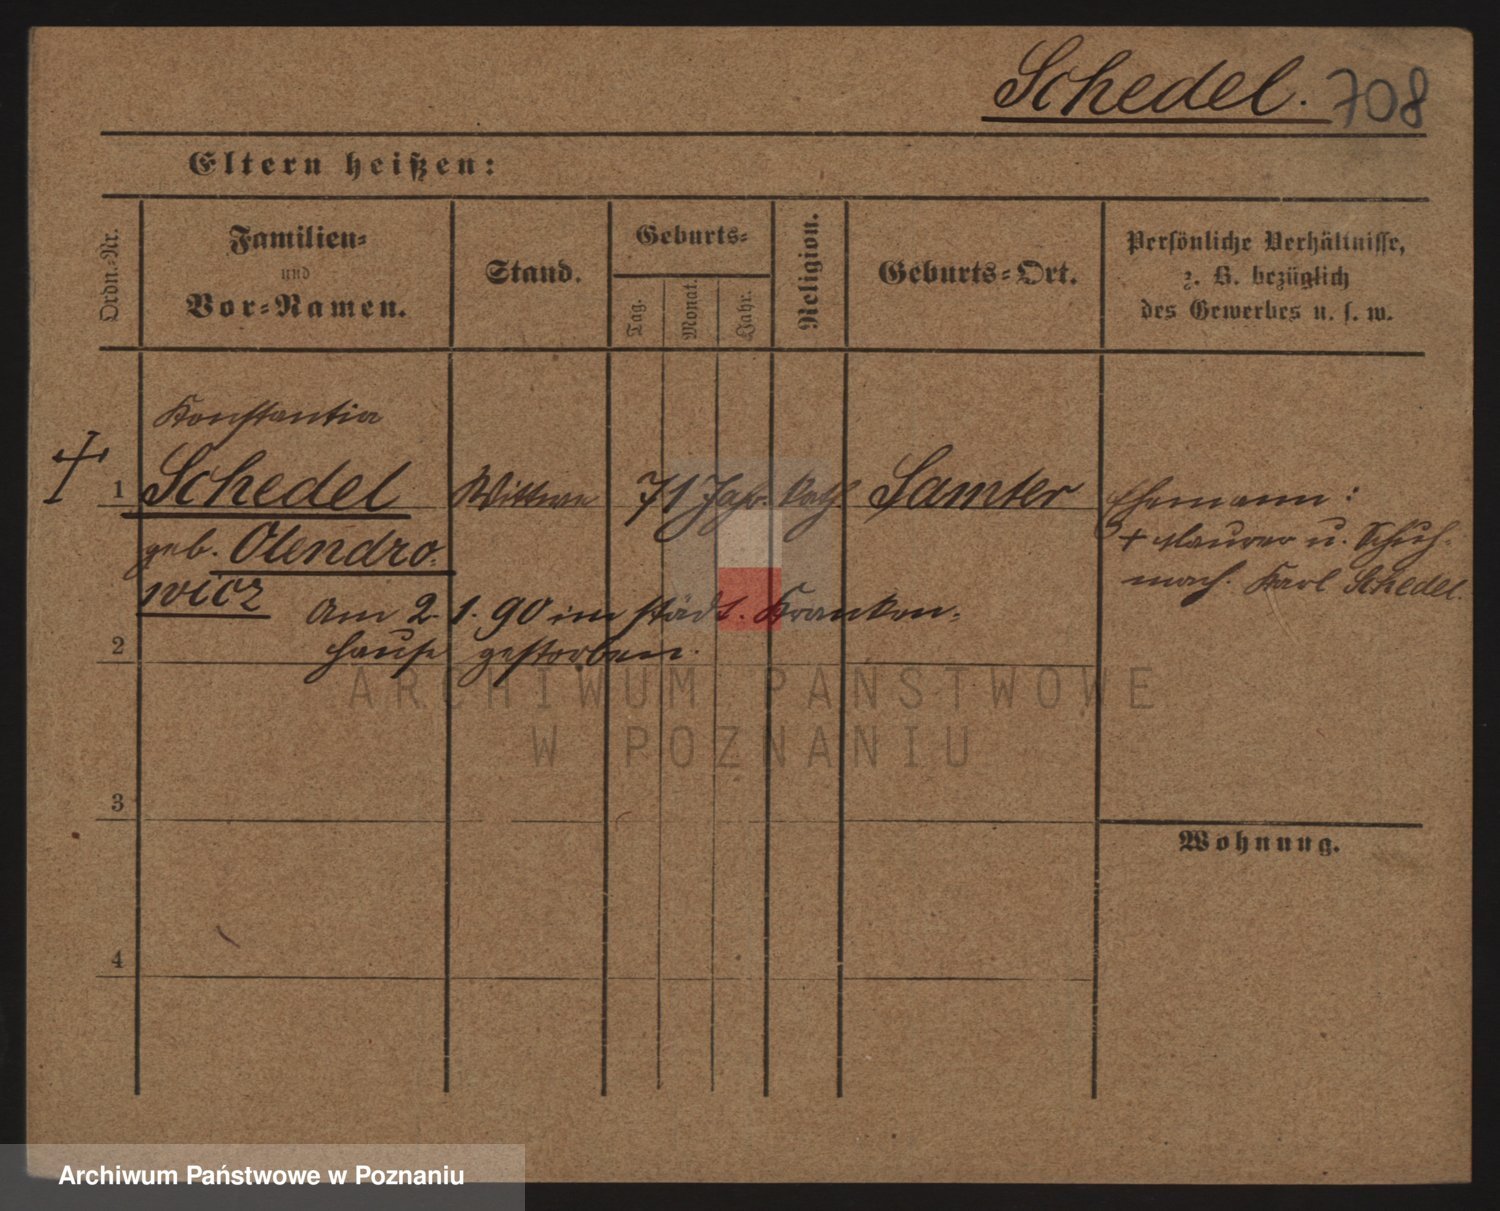 Schedel. 708
Eltern heißen:
Ordn.-Nr.
Familien-
und
Vor-Namen.
Stand.
Geburts-
Tag.
Monat.
Jahr.
Religion.
Geburts-Ort.
Persönliche Verhältnisse,
z. B. bezüglich
des Gewerbes u. s. w.
Konstantia
1 Schedel Wittwe 71 Jahr. kath. Samter Ehemann:
geb. Olendro-
+ Maurer u. Schuh-
wicz
mach. Karl Schedel.
Am 2. 1. 90 im städt. Kranken-
hause gestorben.
2
ARCHIWUM PAŃSTWOWE
W POZNANIU
3
Wohnung.
4
Archiwum Państwowe w Poznaniu